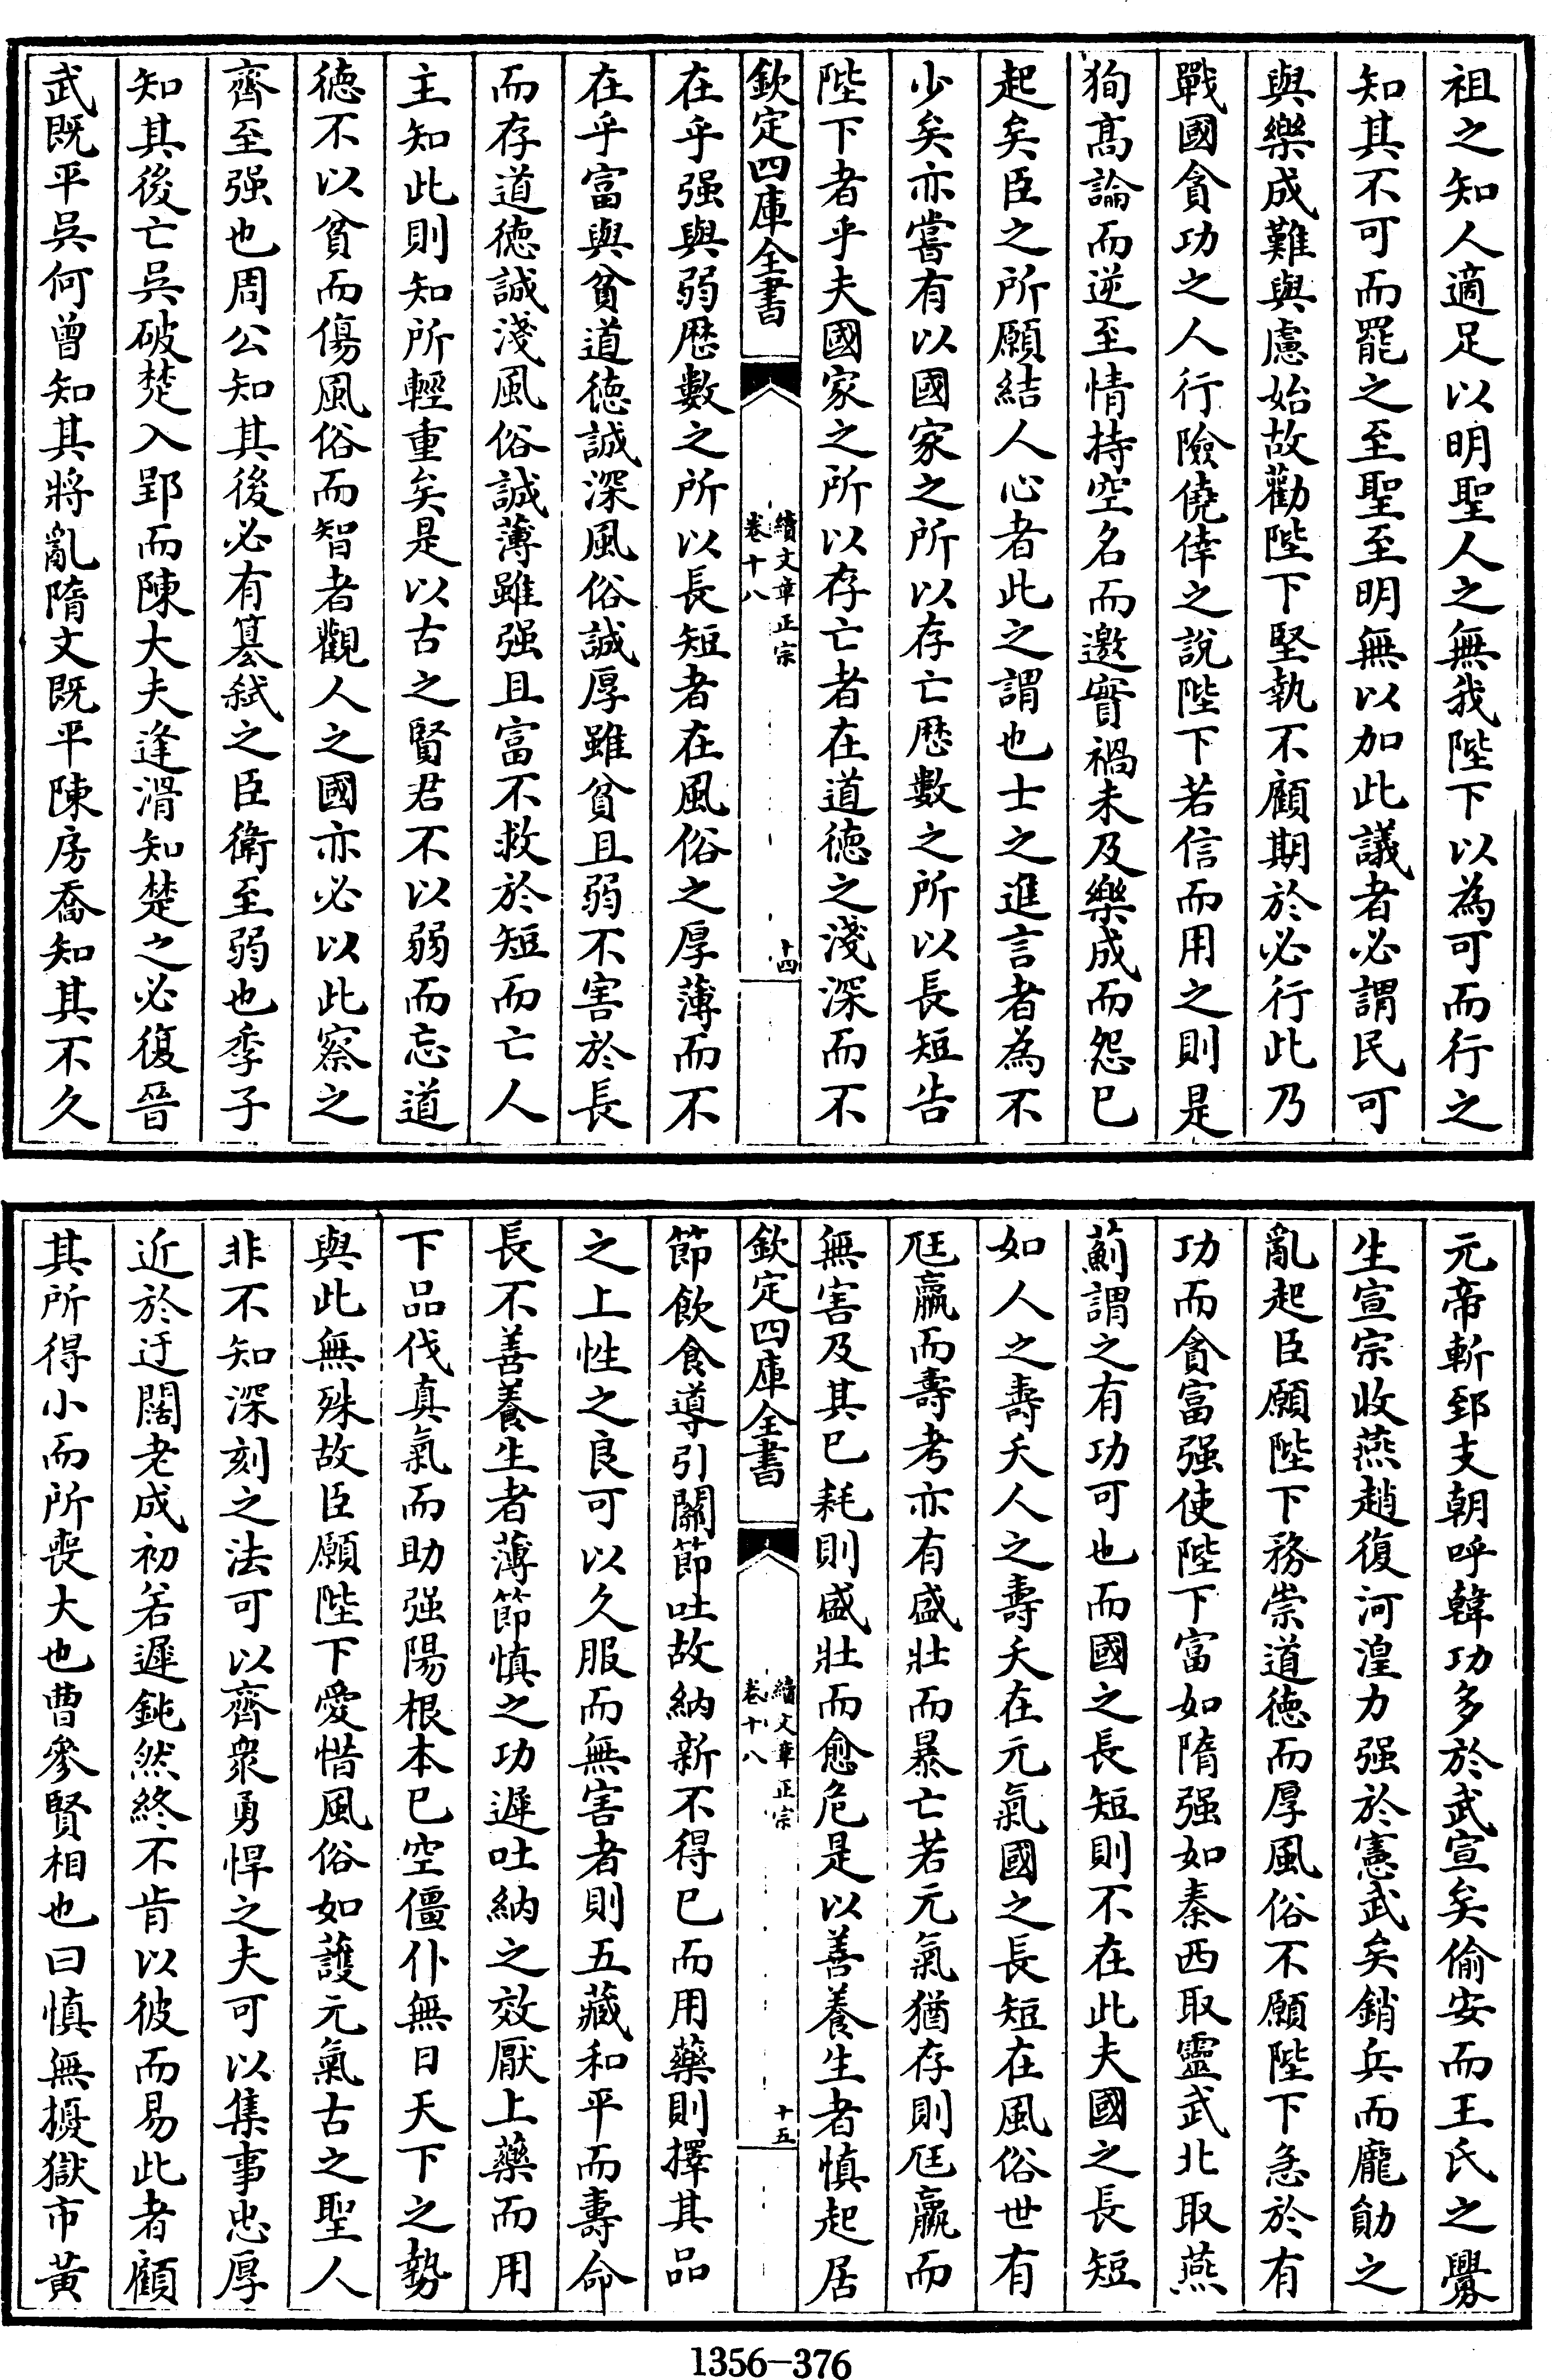 祖之知人適足以明聖人之無我陛下以為可而行之
知其不可而罷之至聖至明無以加此議者必謂民可
與樂成難與慮始故勸陛下堅執不顧期於必行此乃
戰國貪功之人行險僥倖之說陛下若信而用之則是
狥髙論而逆至情持空名而邀實禍未及樂成而怨已
起矣臣之所願結人心者此之謂也士之進言者為不
少矣亦嘗有以國家之所以存亡歴數之所以長短告
陛下者乎夫國家之所以存亡者在道徳之淺深而不
欽定四庫全書
續文章正宗
卷十八
十四
在乎强與弱歴數之所以長短者在風俗之厚薄而不
在乎富與貧道徳誠深風俗誠厚雖貧且弱不害於長
而存道徳誠淺風俗誠薄雖强且富不救於短而亡人
主知此則知所輕重矣是以古之賢君不以弱而忘道
徳不以貧而傷風俗而智者觀人之國亦必以此察之
齊至强也周公知其後必有簒弑之臣衛至弱也季子
知其後亡吳破楚入郢而陳大夫逢滑知楚之必復晉
武既平吳何曾知其將亂隋文既平陳房喬知其不久
元帝斬郅支朝呼韓功多於武宣矣偷安而王氏之釁
生宣宗收燕趙復河湟力强於憲武矣銷兵而龎勛之
亂起臣願陛下務崇道徳而厚風俗不願陛下急於有
功而貪富强使陛下富如隋强如秦西取靈武北取燕
薊謂之有功可也而國之長短則不在此夫國之長短
如人之壽夭人之壽夭在元氣國之長短在風俗世有
尪羸而壽考亦有盛壯而暴亡若元氣猶存則尪羸而
無害及其已耗則盛壯而愈危是以善養生者慎起居
欽定四庫全書
續文章正宗
卷十八
十五
節飲食導引關節吐故納新不得已而用藥則擇其品
之上性之良可以久服而無害者則五藏和平而壽命
長不善養生者薄節慎之功遲吐納之效厭上藥而用
下品伐真氣而助强陽根本已空僵仆無日天下之勢
與此無殊故臣願陛下愛惜風俗如䕶元氣古之聖人
非不知深刻之法可以齊衆勇悍之夫可以集事忠厚
近於迂闊老成初若遲鈍然終不肯以彼而易此者顧
其所得小而所喪大也曹參賢相也曰慎無擾獄市黄
1356—376